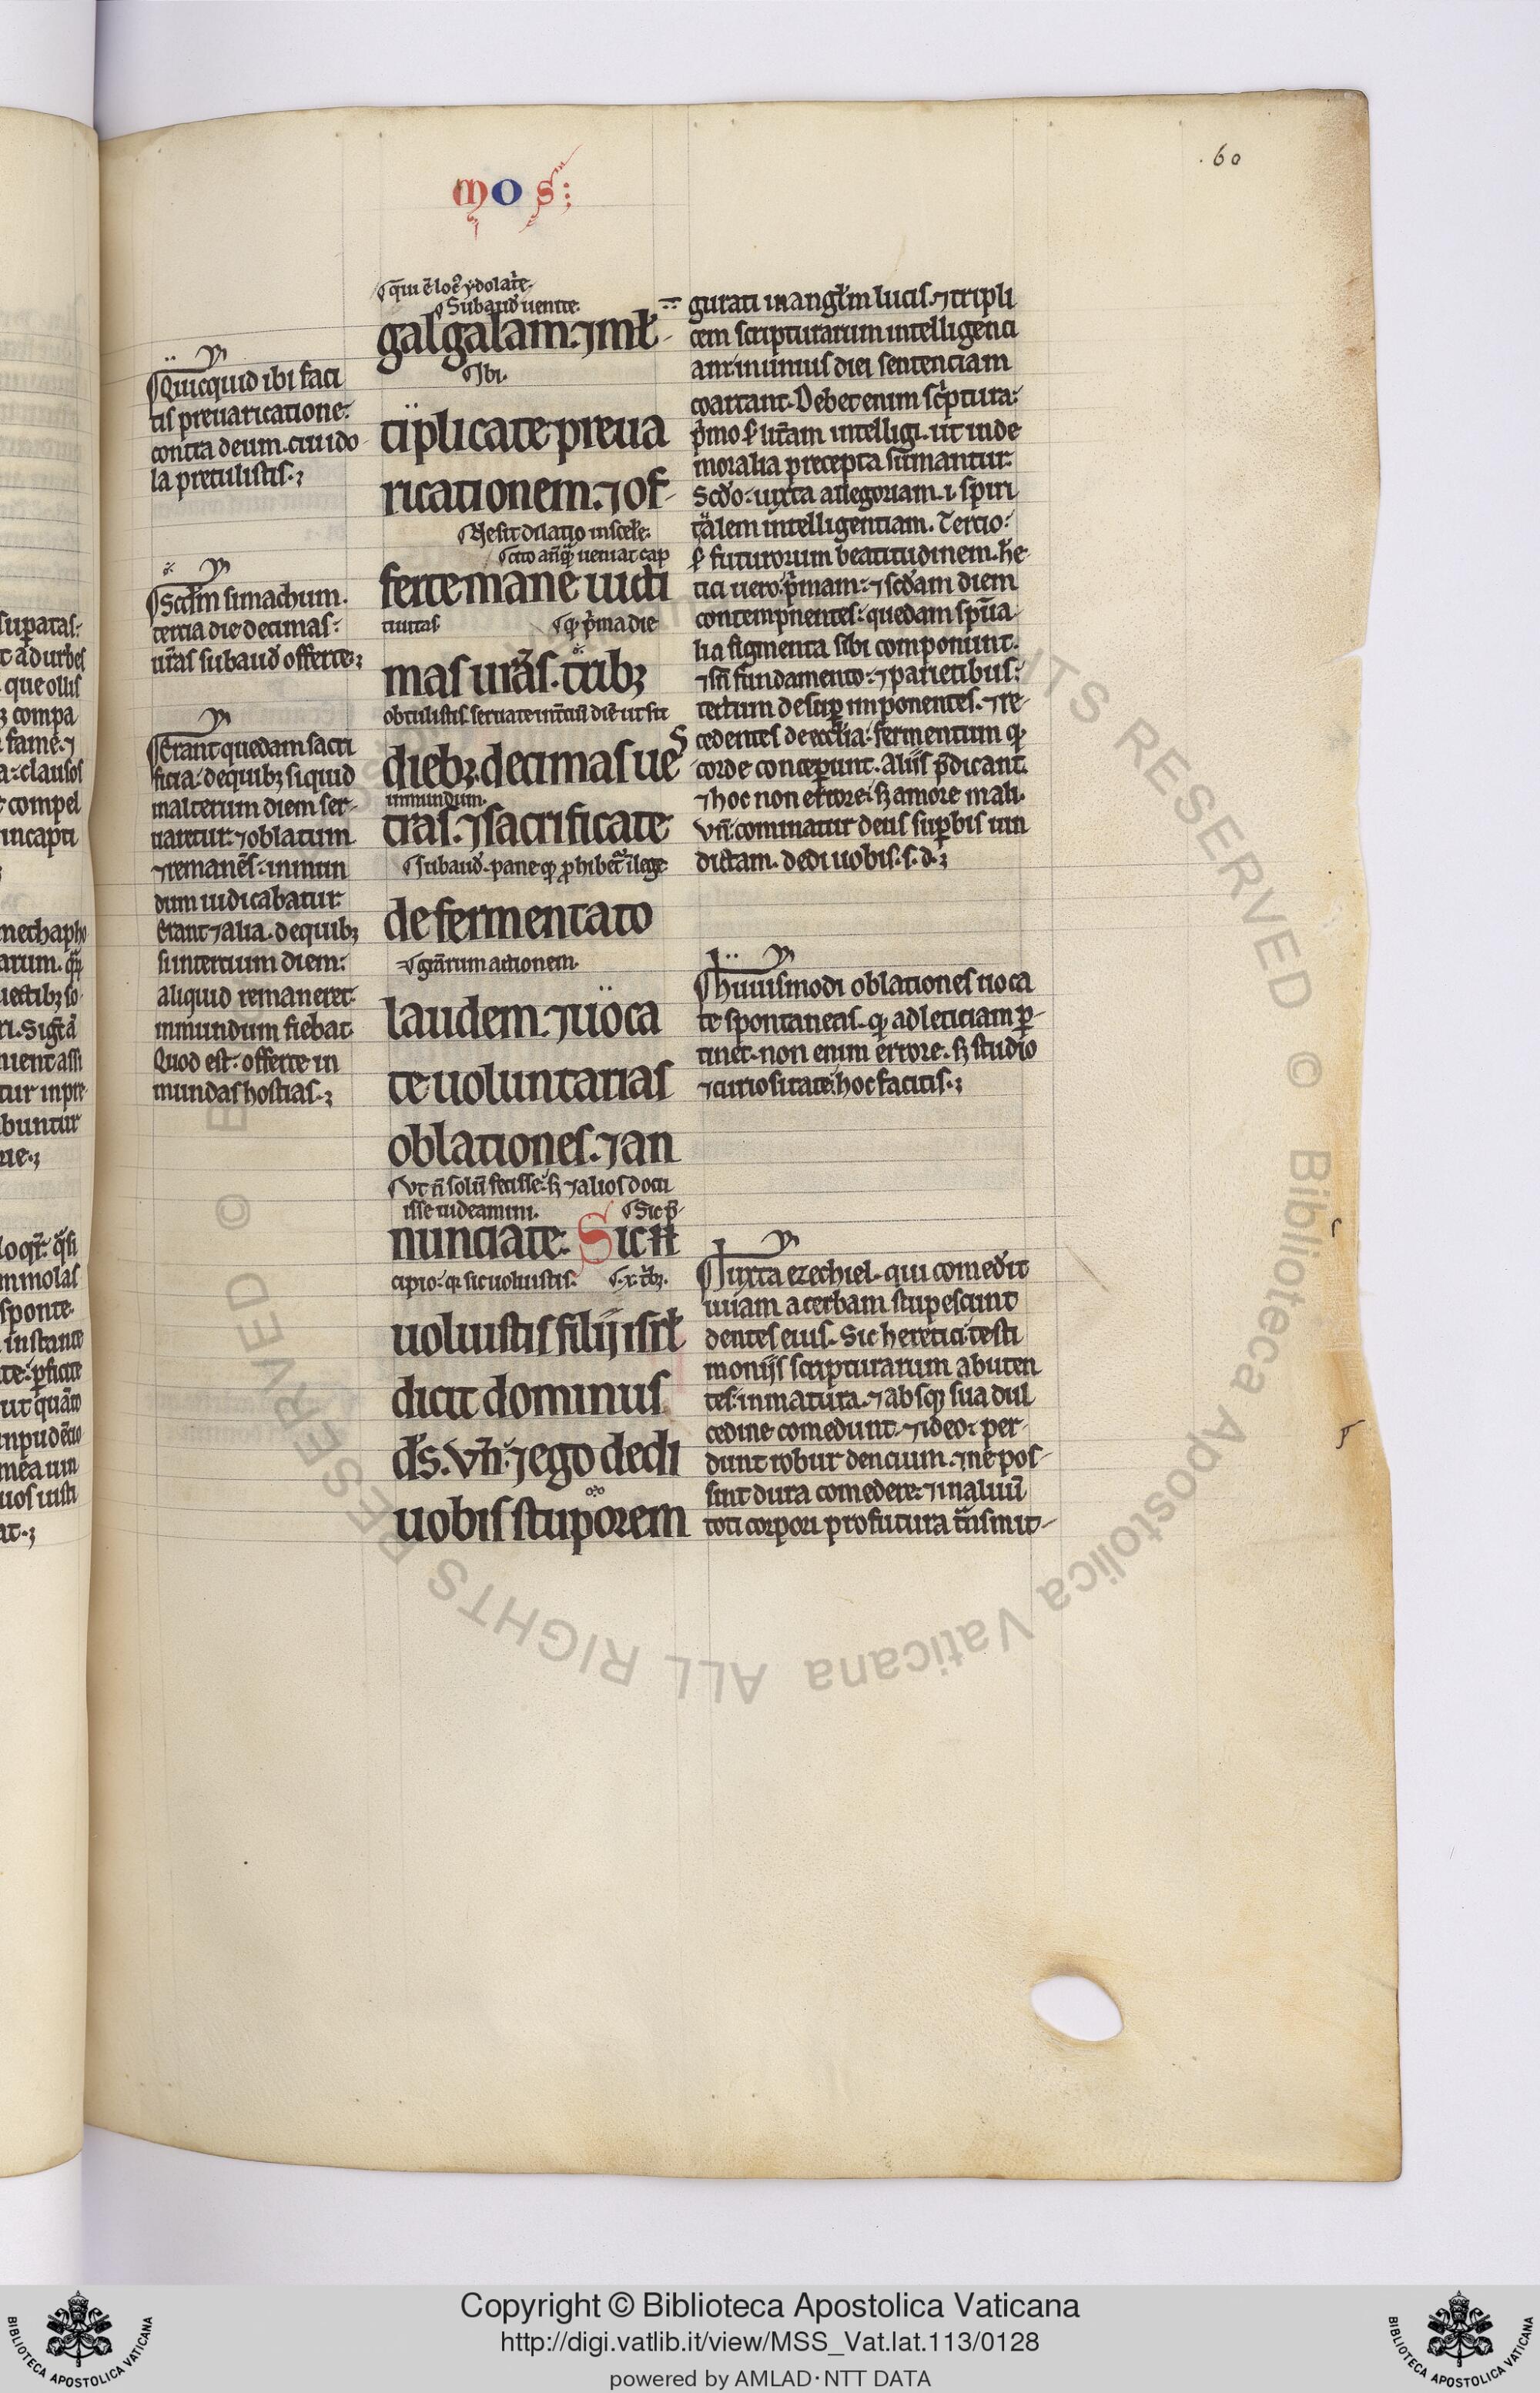 mos
. 60
qm̄ ē loc' ydolat̾e.
Subaud' uenite.
galgalam. ⁊ ml̾-
Ibi.
tiplicate preua
ricationem. ⁊ of-
Ne sit dilatio in scele̾.
cito anq̄ȝ ueniat cap
ferte mane uicti
tiuitas. q' p̾ma die
mas ur̄as. tribȝ
obtulistis. seruate int̾ciū diē ut sit
diebȝ. decimas ues
inmundum.
tras. ⁊ sacrificate
Subaud'. pane q' ꝓhibet̾ ī lege
de fermentato
gr̄arum actionem.
laudem. ⁊ uoca
te uoluntarias
oblationes. ⁊ an
Vt n̄ solū fecisse. sȝ ⁊ alios docu
isse uideamini. Sic p̄-
nunciate. Sic n̄
cipio. q' sic uoluistis. .x. t̾bȝ.
uoluistis filij isrl̾
dicit dominus
d's. Vn̄. ⁊ ego dedi
uobis stuporem
Quicquid ibi faci
tis preuaricatione.
contra deum. cui ido-
la pretulistis.;
Scd'm simachum.
tertia die decimas.
ur̄as subaud' offerte.;
Erant quedam sacri
ficia. de quibȝ si quid
in alterum diem ser-
uaretur. ⁊ oblatum
⁊ remanēs. inmun
dum iudicabatur.
Erant ⁊ alia. de quibȝ
si in tertium diem.
aliquid remaneret.
inmundum fiebat.
Quod est. offerre in
mundas hostias.;
gurati in angl̾m lucis. ⁊ tripli
cem scripturarum intelligenci
am. in unius diei sentenciam
coartant. Debet enim sc̾ptura.
p̾mo s' lit̄am intelligi. ut inde
moralia precepta sumantur.
Scd'o. iuxta allegoriam. i. spiri
talem intelligentiam. Tercio.
s' futurorum beatitudinem. he-
tici uero. p̾mam. ⁊ scd'am diem
contempnentes. quedam sp̄ua-
lia figmenta sibi componunt.
⁊ sn̄ fundamento. ⁊ parietibus.
tectum desup̱ imponentes. ⁊ re-
cedentes de eccl̾ia. fermentum q'
corde concep̱unt. alijs p̄dicant.
⁊ hoc non errore. sȝ amore mali.
Vn̄. cominatur deus sup̱bis uin
dictam. dedi uobis. s. d.;
huiuismodi oblationes uoca
te spontaneas. q' ad leticiam p̱-
tinet. non enim errore. sȝ studio
⁊ curiositate. hoc facitis.;
Iuxta ezechiel. qui comed'it
uuam acerbam stupescunt
dentes eius. Sic heretici. testi
monijs scripturarum abuten
tes. inmatura. ⁊ absq' sua dul
cedine comedunt. ⁊ ideo. per-
dunt robur dencium. ⁊ ne pos-
sint dura comedere. ⁊ in aluū
toti corpori profutura tn̄smit-
Copyright © Biblioteca Apostolica Vaticana
http://digi.vatlib.it/view/MSS_Vat.lat.113/0128
powered by AMLAD · NTT DATA
BIBLIOTECA APOSTOLICA VATICANA
BIBLIOTECA APOSTOLICA VATICANA
© Biblioteca Apostolica Vaticana ALL RIGHTS RESERVED